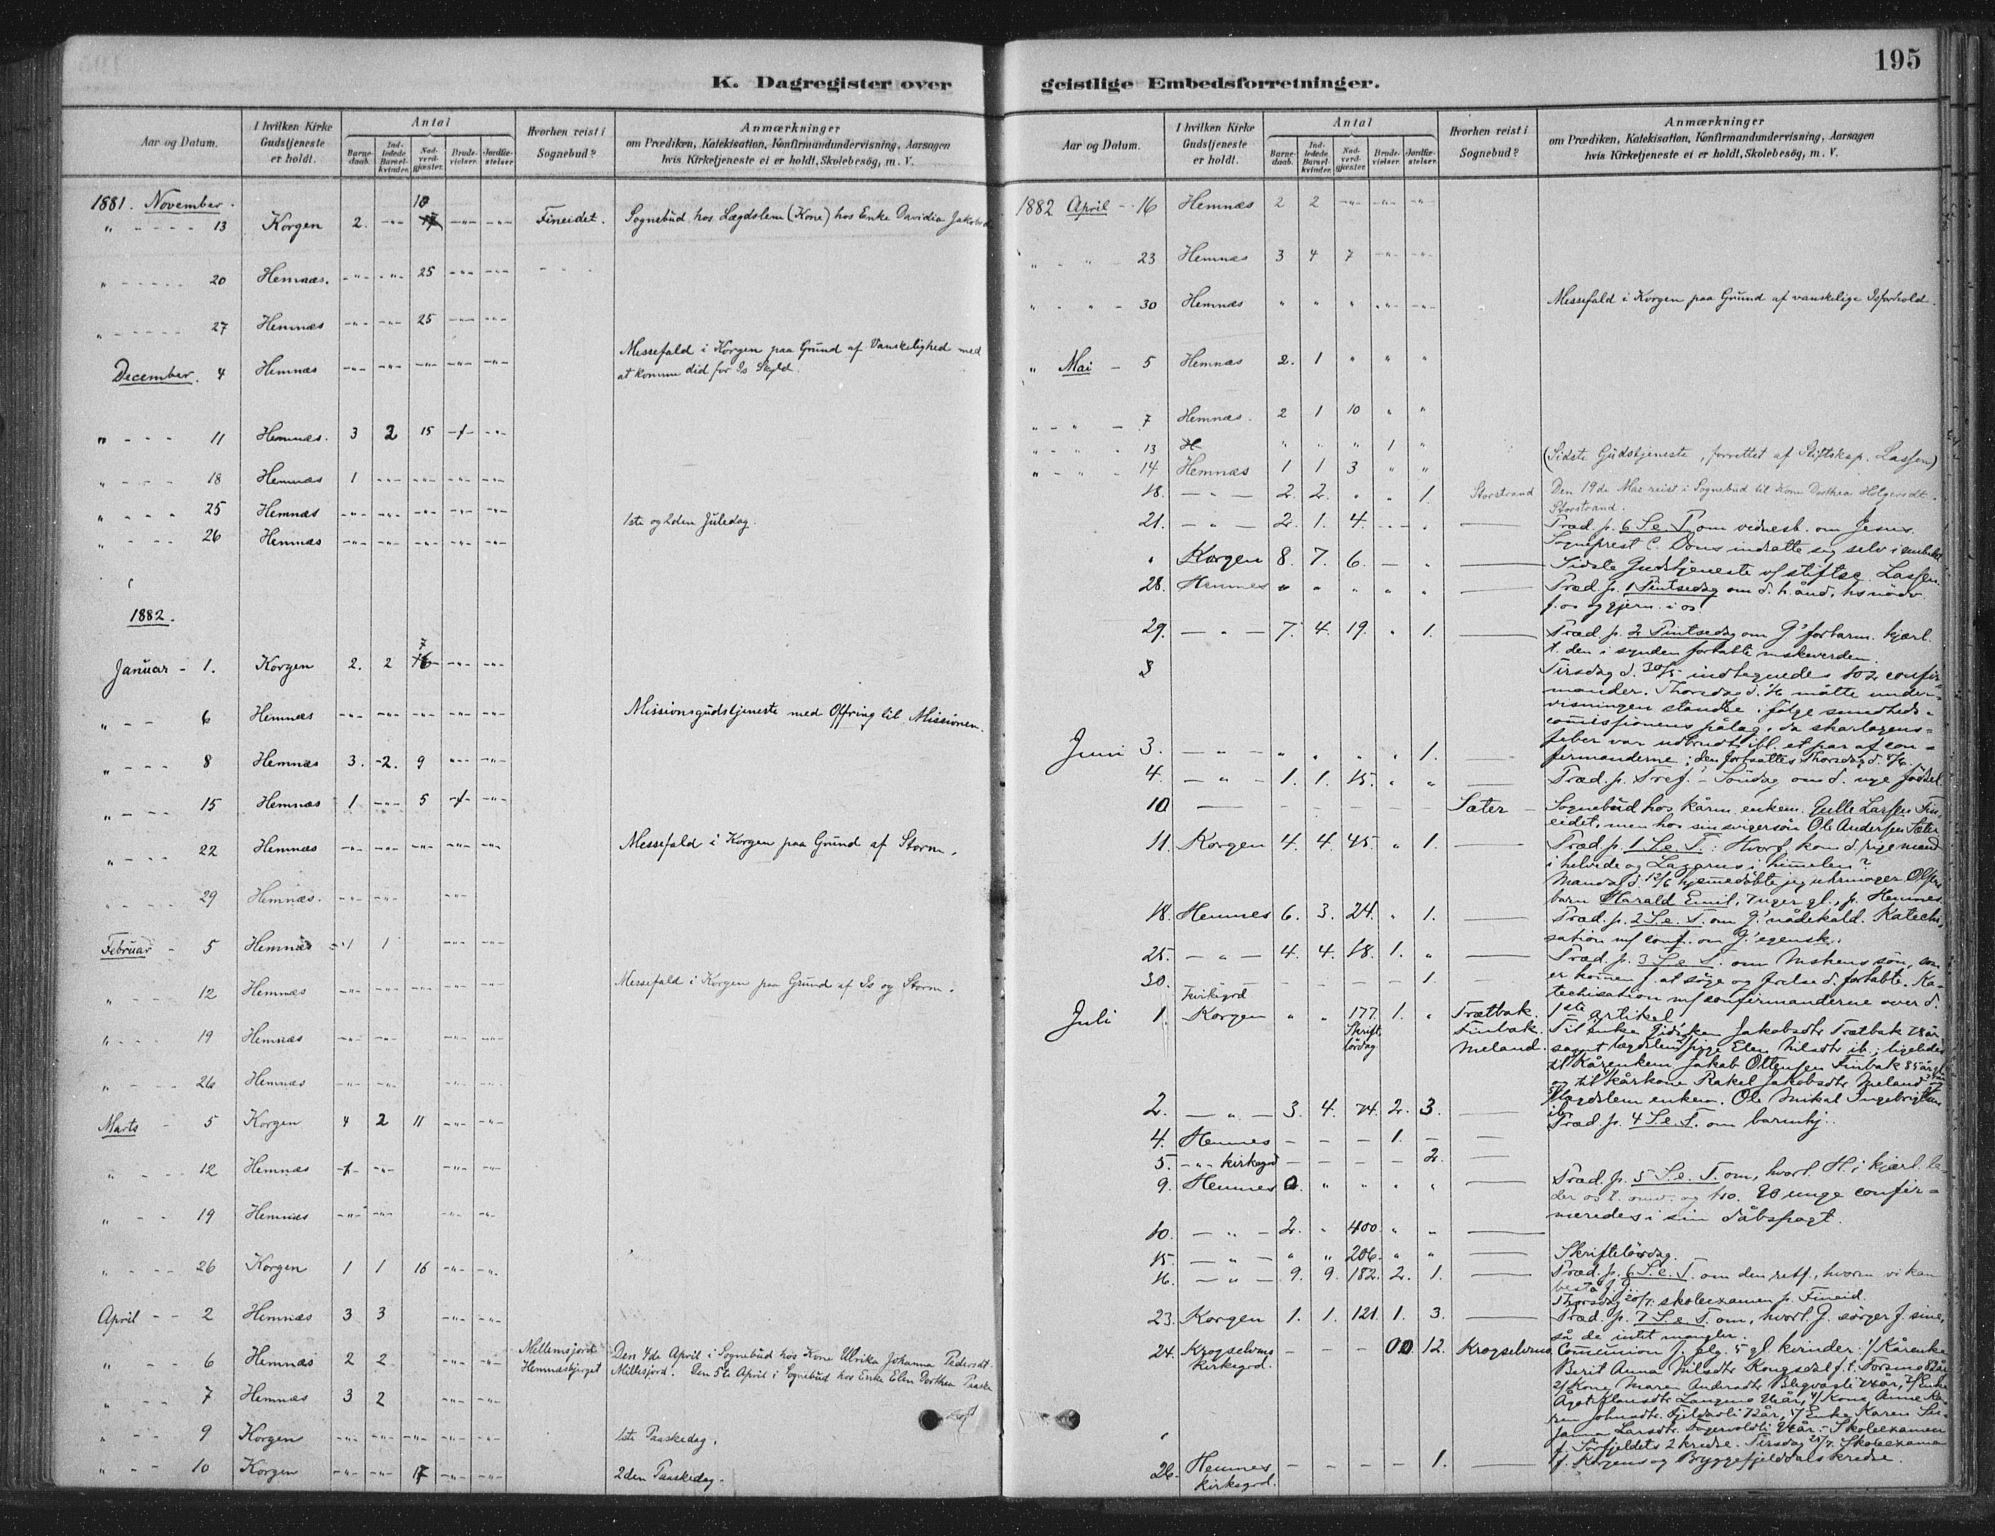 K. Dagregister over
Aar og Datum.
I hvilken Kirke Gudstjeneste er holdt.
Antal
Barnedaab.
Indledede Barselkvinder.
Nadverdgjæster.
Brudevielser.
Jordfæstelser
Hvorhen reist i Sognebud?
Anmærkninger
om Prædiken, Katekisation, Konfirmandundervisning, Aarsagen
hvis Kirketjeneste ei er holdt, Skolebesøg, m. V.
1881. November. 18
" 13 Korgen 2. -"- 17 -"- -"- Fineidet. Sognebud hos Lægdslem (Kone) hos Enke Davidia Jakobsd
" 20 Hemnæs. -"- -"- 25 -"- -"-
" 27 Hemnæs -"- -"- 25 -"- -"-
Messefald i Korgen paa Grund af Vanskelighed med
December. 4 Hemnæs -"- -"- -"- -"- -"- at komme did for Is Skyld.
" 11 Hemnæs. 3 2 15 -1- -"-
" 18 Hemnæs 1 -"- -"- -"- -"-
" 25 Hemnæs -"- -"- -"- -"- -"- 1ste og 2den Juledag.
" 26 Hemnæs -"- -"- -"- -"- -"-
1882.
7
Januar - 1. Korgen 2. 2 16 -"- -"-
" 6 Hemnæs -"- -"- -"- -"- -"- Missionsgudstjeneste med Offring til Missionen.
" 8 Hemnæs 3. -2. 9 -"- -"-
" 15 Hemnæs 1 -"- 5 -1- -"-
" 22 Hemnæs -"- -"- -"- -"- -"- Messefald i Korgen paa Grund af Storm.
29 Hemnæs. -"- -"- -"-
Februar - 5 Hemnæs 1 1 -"- -"-
" 12 Hemnæs -"- -"- -"- -"- -"- Messefald i Korgen paa Grund af Is og Storm.
" 19 Hemnæs -"- -"- -"- -"-
" 26 Hemnæs -"- -"- -"- -"-
Marts - 5 Korgen 4 2 11 -"- -"-
" 12 Hemnæs -1- -"- -"- -"-
" 19 Hemnæs -"- -"- -"- -"-
" 26 Korgen 1 1 16 -"- -"-
April - - 2 Hemnæs 3 3 -"- -"-
" 6 Hemnæs 2 2 -"- -"- Millemsjord Hemnæsbjerget Den 4de April i Sognebud hos Kone Ulrika Johanna Pedersdt.
Millesjord. Den 5te April i Sognebud hos Enke Elen Dorthea
" 7 Hemnæs 3 2 -"- -"-
" 9 Korgen -"- -"- -"- -"- -"- 1ste Paaskedag.
" 10 Korgen -"- -"- 17 -"- -"- 2den Paaskedag.
geistlige Embedsforretninger.
195
Aar og Datum.
I hvilken Kirke Gudstjeneste er holdt.
Antal
Barnedaab.
Indledede Barselkvinder.
Nadverdgjæster.
Brudevielser.
Jordfæstelser.
Hvorhen reist i Sognebud?
Anmærkninger
om Prædiken, Katekisation, Konfirmandundervisning, Aarsagen
hvis Kirketjeneste ei er holdt, Skolebesøg, m. V.
1882 April - 16 Hemnæs 2 2 -"- -"- -"-
" " - 23 Hemnæs 3 4 7 -"- -"-
" " - 30 Hemnæs " " " " " Messefald i Korgen paa Grund af vanskelige Isforhold.
" Mai - 5 Hemnæs 2. 1 " " "
" " - 7 Hemnæs. 2 1 10 " "
" " 13 H " " " 1 "
" " - 14 Hemnæs 1 1 3 " " (Sidste Gudstjeneste, forrettet af Stiftskap. Lassen)
18. - " - 2. 2. " " 1. Storstrand Den 19de Mai reist i Sognebud til Kone Dorthea Holgersdt.
Storstrand.
21. - " - 2. 1. 4. Præd. p. 6 S. e. P. om vidnesb. om Jesus.
Sogneprest C. Dons indsatte sig selv i embedet
" Korgen 8. 7. 6. - " Sidste Gudstjeneste v/ stiftsc. Lassen.
28. Hemnes " " " " " Præd. p. 1 Pintsedag om d. h. ånd, hs nådv
f. os og gjern. i os.
29. - " - 7. 4. 19. " 1. Præd. p. 2 Pintsedag om G' forbarm. kjærl.
t. den i synden fortabte mskeverden.
Tirsdag d. 30/5 indtegnedes 102 confirmander.
Thorsdag d. 1/6 måtte undervisningen
standse i følge sundhedscommissionens
pålæg, da skarlagensfeber
var udbrudt ibl. et par af con-
Juni 3. - " - " " " " 1. firmanderne; den fortsattes Thorsdag d. 8/6.
4. - " - 1. 1. 15. " " Præd. p. Tref. Søndag om d. nye fødsel
10. Sæter Sognebud hos kårm. enkem. Gulle Larssen Fineidet,
men hos sin svigersøn Ole Andersen Sæter
11. Korgen 4. 4. 45. " 1. Præd. p. 1 S. e. T.: Hvorf. kom d. rige mand
i helvede og Lazarus i himmelen?
Mandag d. 12/6 hjemmedøbte jeg uhrmager Olsens
barn Harald Emil, 7 uger gl., p. Hemnes.
18. Hemnes 6. 3. 24. " 1. Præd. p. 2 S. e. T. om G' nådekald. Katechisation
m/ conf. om G' egensk.
25. - " - 4. 4. 18. 1. " Præd. p. 3 S. e. T. om Mskens søn, som
30. - - - - 1. er kommen f. at søge og frelse d. fortabte. Katechisation
m/ confirmanderne over d.
1ste artikel.
Juli 1. Korgen " " 177. Skriftlørdag. 1. " Trætbak. Finbak. Meland. Til enke Gidsken Jakobsdtr Trætbak 78 år
samt lægdslem pige Elen Nilsdtr ib.; ligeledes
til Kårenkem Jakob Ottensen Finbak 85 år
til kårkone Rakel Jakobsdtr Meland
lægdslem enkem. Ole Mikal Ingebrigtsen
ib.
2. - " - 3. 4. 74. 2. 3. Præd. p. 4 S. e. T. om barmhj.
4. Hemnes - - - 1. -
5. - " - kirkegrd - - - - 2.
9. Hemnes 0 " " " " Præd. p. 5 S. e. T. om, hvorl. H. i kjærl. leder
os t. omv. og tro. 90 unge confirmeredes
i sin dåbspagt.
10. - " - 2. " 400 " "
15. - " - " " 206. " " Skriftelørdag.
16. - " - 9. 9. 182. 2. 1. Præd. p. 6 S. e. T. om den retf., hvorm vi kan
bestå f. G.
Thorsdag 20/7. skoleexamen p. Fineid.
23. Korgen 1. 1. 121. 1. 3. Præd. p. 7 S. e. T. om, hvorl. G. sørger f. sine,
så de intet mangler.
24. Krogselvens kirkegrd. - - - 00 12. Krogselvens Communion f. plg. 5 gl. kvinder: 1/ Kårenke
Berit Anna Nilsdtr Kongsdal f. t. Forsmo 82 år,
2/ Kone Maren Andersdtr
4/ Kone Anne
72 år, 5/ Enke Karen
Larsdtr. Skoleexamen
f. Sørfjeldets 2 kredse. Tirsdag 25/7. Skoleexamen
26. Hemnes kirkegrd. - - - - 1. f. Korgens og Bryggefjelddals kredse.